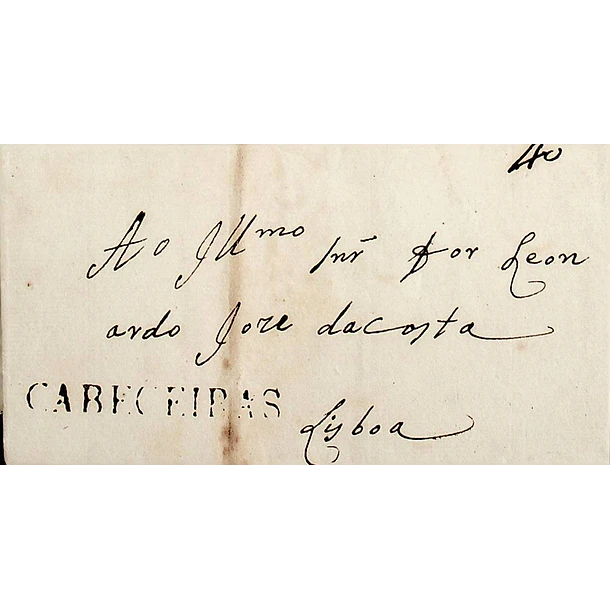 40
Ao Illmo Snr Dor Leon
ardo Joze dacosta
CABECEIRAS
Lisboa